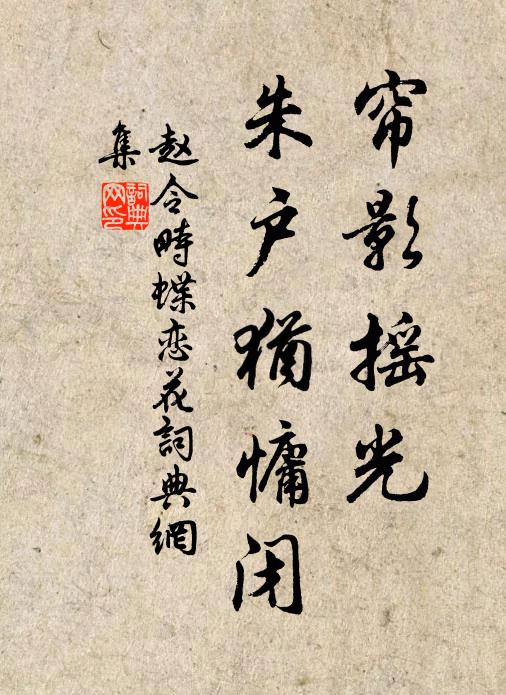 帘影摇光
朱户犹慵闭
赵令畤蝶恋花詞典網
集
詞典网印